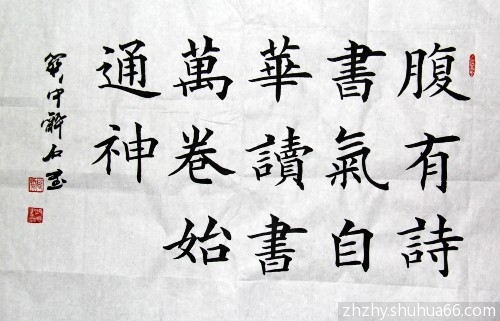 腹有詩
書氣自
華讀書
萬卷始
通神
zhzhy.shuhua66.com